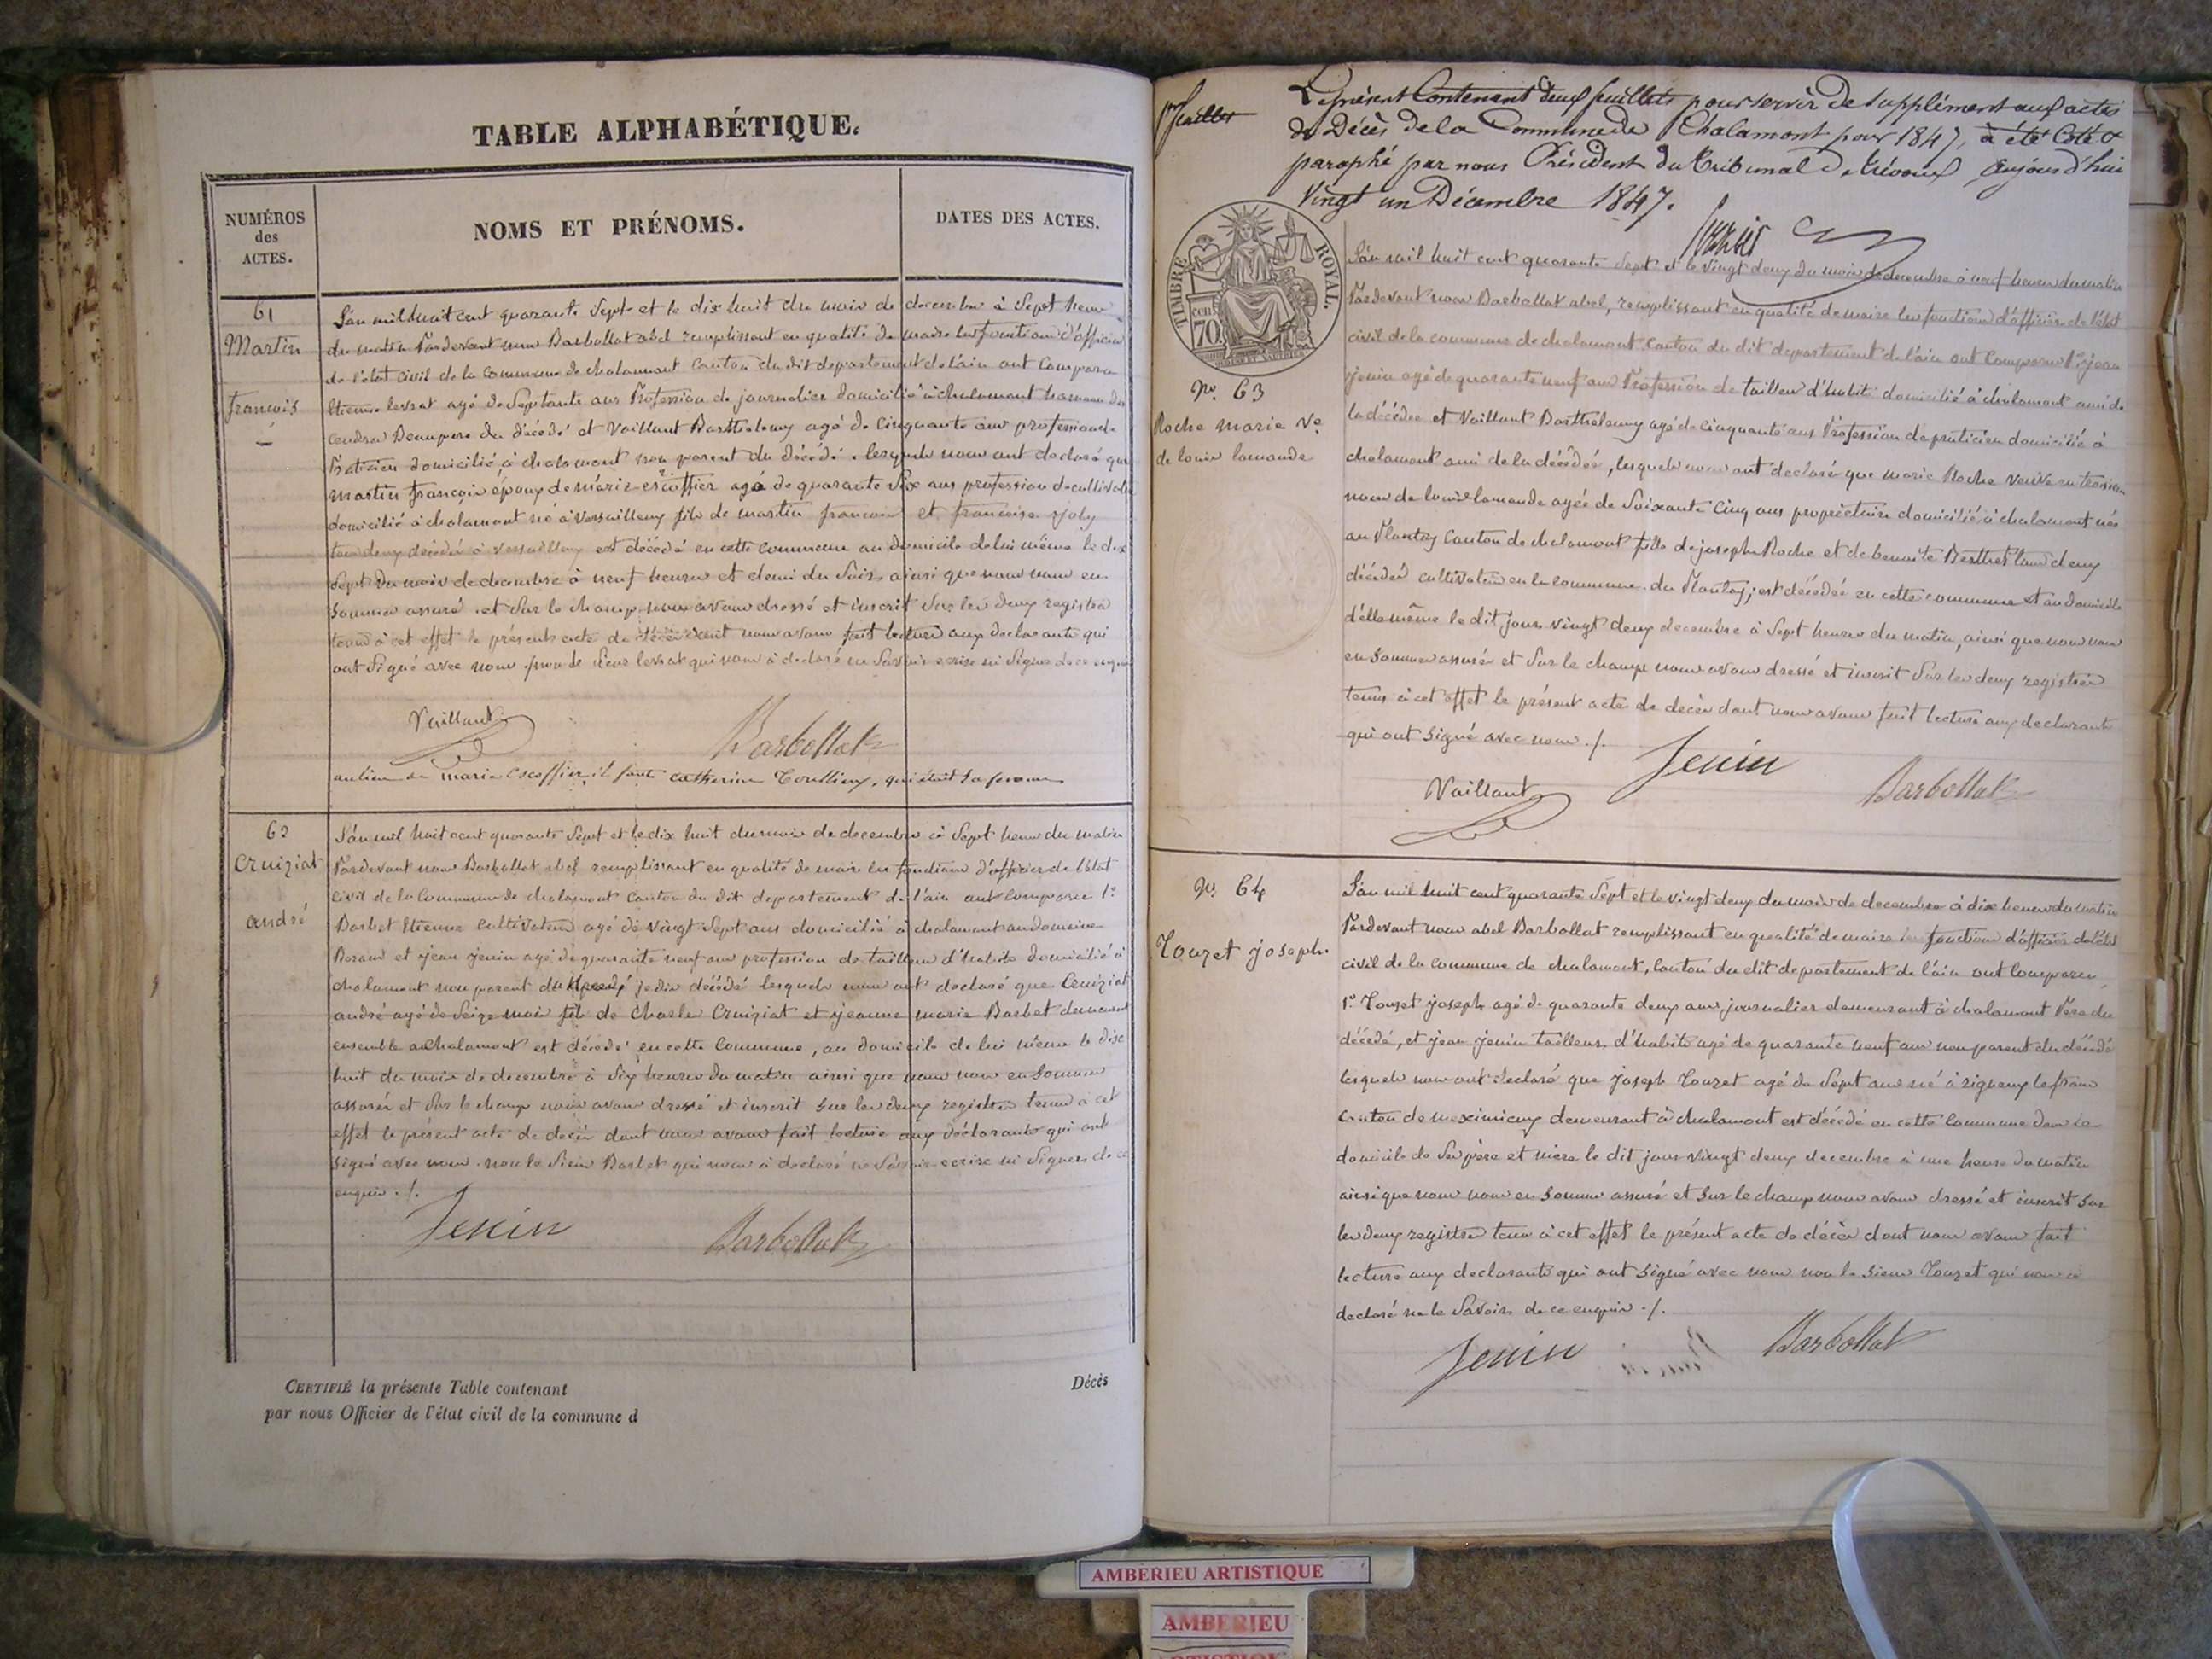 TABLE ALPHABÉTIQUE.
NUMÉROS
des
ACTES.
NOMS ET PRÉNOMS.
DATES DES ACTES.
61
Martin
françois
L'an mil huit cent quarante Sept et le dix huit du mois de decembre à Sept heures
du matin Pardevant nous Barbollat abel remplissant en qualité de maire les fonctions d'officier
de l'état civil de la commune de chalamont canton du dit departement de l'ain ont comparu
Etienne levrat agé de Septante ans Profession de journalier domicilié à chalamont hameau du
Beaupere du décédé et Vaillant Barthelemy agé de Cinquante ans profession de
Praticien domicilié à chalamont non parent du décédé. lesquels nous ont declaré que
martin françois époux de marie escoffier agé de quarante Six ans profession de cultivateur
domicilié à chalamont né à Versailleux fils de martin françois et françoise joly
tous deux décédés à Versailleux est décédé en cette commune au domicile de lui même le dix
Sept du mois de decembre à neuf heures et demi du Soir ainsi que nous nous en
Sommes assuré. et Sur le champ nous avons dressé et inscrit Sur les deux registres
tenus à cet effet le présent acte de décès dont nous avons fait lecture aux declarants qui
ont Signé avec nous levrat qui nous à declaré ne Savoir ecrire ni Signer de ce enquis
Vaillant
Barbollat
au lieu de marie Escoffier, il faut catherine qui était sa femme
62
Cruiziat
andré
L'an mil huit cent quarante Sept et le dix huit du mois de decembre à Sept heures du matin
Pardevant nous Barbollat abel remplissant en qualité de maire les fonctions d'officier de l'état
civil de la Commune de chalamont Canton du dit departement de l'ain ont comparu 1°
Barbet Etienne Cultivateur agé de Vingt Sept ans domicilié à chalamont au domaine
et jean jenin agé de quarante neuf ans profession de tailleur d'habits domicilié à
chalamont non parent du décédé lesquels nous ont declaré que Cruiziat
andré agé de Seize mois fils de Charles Cruiziat et jeanne marie Barbet demeurant
ensemble a chalamont est décédé en cette Commune, au domicile de lui même le dix
huit du mois de decembre à Six heures du matin ainsi que nous nous en Sommes
assurés et Sur le champ nous avons dressé et inscrit Sur les deux registres tenus à cet
effet le présent acte de decès dont nous avons fait lecture aux déclarants qui ont
Signé avec nous. non le Sieur Barbet qui nous à declaré ne Savoir ecrire ni Signer de ce
enquis ./.
Jenin
Barbollat
CERTIFIÉ la présente Table contenant
Décès
par nous Officier de l'état civil de la commune d
1er feuillet
Le présent Contenant deux feuillets pour servir de Supplément aux actes
de Décès de la Commune de Chalamont pour 1847, à été Coté &
paraphé par nous Président du tribunal de trévoux aujourd'hui
Vingt un Décembre 1847.
TIMBRE ROYAL.
cen. 70
No. 63
Roche marie ve
de louis lamande
L'an mil huit cent quarante Sept et le vingt deux du mois de decembre à neuf heures du matin
Pardevant nous Barbollat abel, remplissant en qualité de maire les fonctions d'officier de l'état
civil de la commune de chalamont Canton du dit departement de l'ain ont Comparu 1° jean
jenin agé de quarante neuf ans Profession de tailleur d'habits domicilié à chalamont ami de
la décédée et Vaillant Barthélemy agé de Cinquante ans Profession de praticien domicilié à
chalamont ami de la décédée, lesquels nous ont declaré que marie Roche veuve en
de louis lamande agée de Soixante Cinq ans propriétaire domicilié à chalamont née
au Plantay Canton de chalamont fille de joseph Roche et de benoite Berthet tous deux
décédés cultivateurs en la commune du Plantay, est décédée en cette commune et au domicile
d'elle même le dit jour vingt deux decembre à Sept heures du matin, ainsi que nous nous
en Sommes assurés et Sur le champ nous avons dressé et inscrit Sur les deux registres
tenus à cet effet le présent acte de decès dont nous avons fait lecture aux declarants
qui ont Signé avec nous ./.
Jenin
Vaillant
Barbollat
No. 64
Touzet joseph.
L'an mil huit cent quarante Sept et le vingt deux du mois de decembre à dix heures du matin
Pardevant nous abel Barbollat remplissant en qualité de maire les fonctions d'officier de l'état
civil de la commune de chalamont, Canton du dit departement de l'ain ont Comparu
1° Touzet joseph agé de quarante deux ans journalier demeurant à chalamont Père du
décédé, et jean jenin tailleur d'habits agé de quarante neuf ans non parent du décédé
lesquels nous ont declaré que joseph Touzet agé de Sept ans né à rigneux le franc
canton de meximieux demeurant à chalamont est décédé en cette Commune dans le
domicile de Ses père et mère le dit jour vingt deux decembre à une heure du matin
ainsi que nous nous en Somme assuré et Sur le champ nous avons dressé et inscrit Sur
les deux registres tenus à cet effet le présent acte de décès dont nous avons fait
lecture aux declarants qui ont Signé avec nous non le Sieur Touzet qui nous a
declaré ne le Savoir de ce enquis ./.
Jenin
Barbollat
AMBERIEU ARTISTIQUE
AMBERIEU
ARTISTIQUE